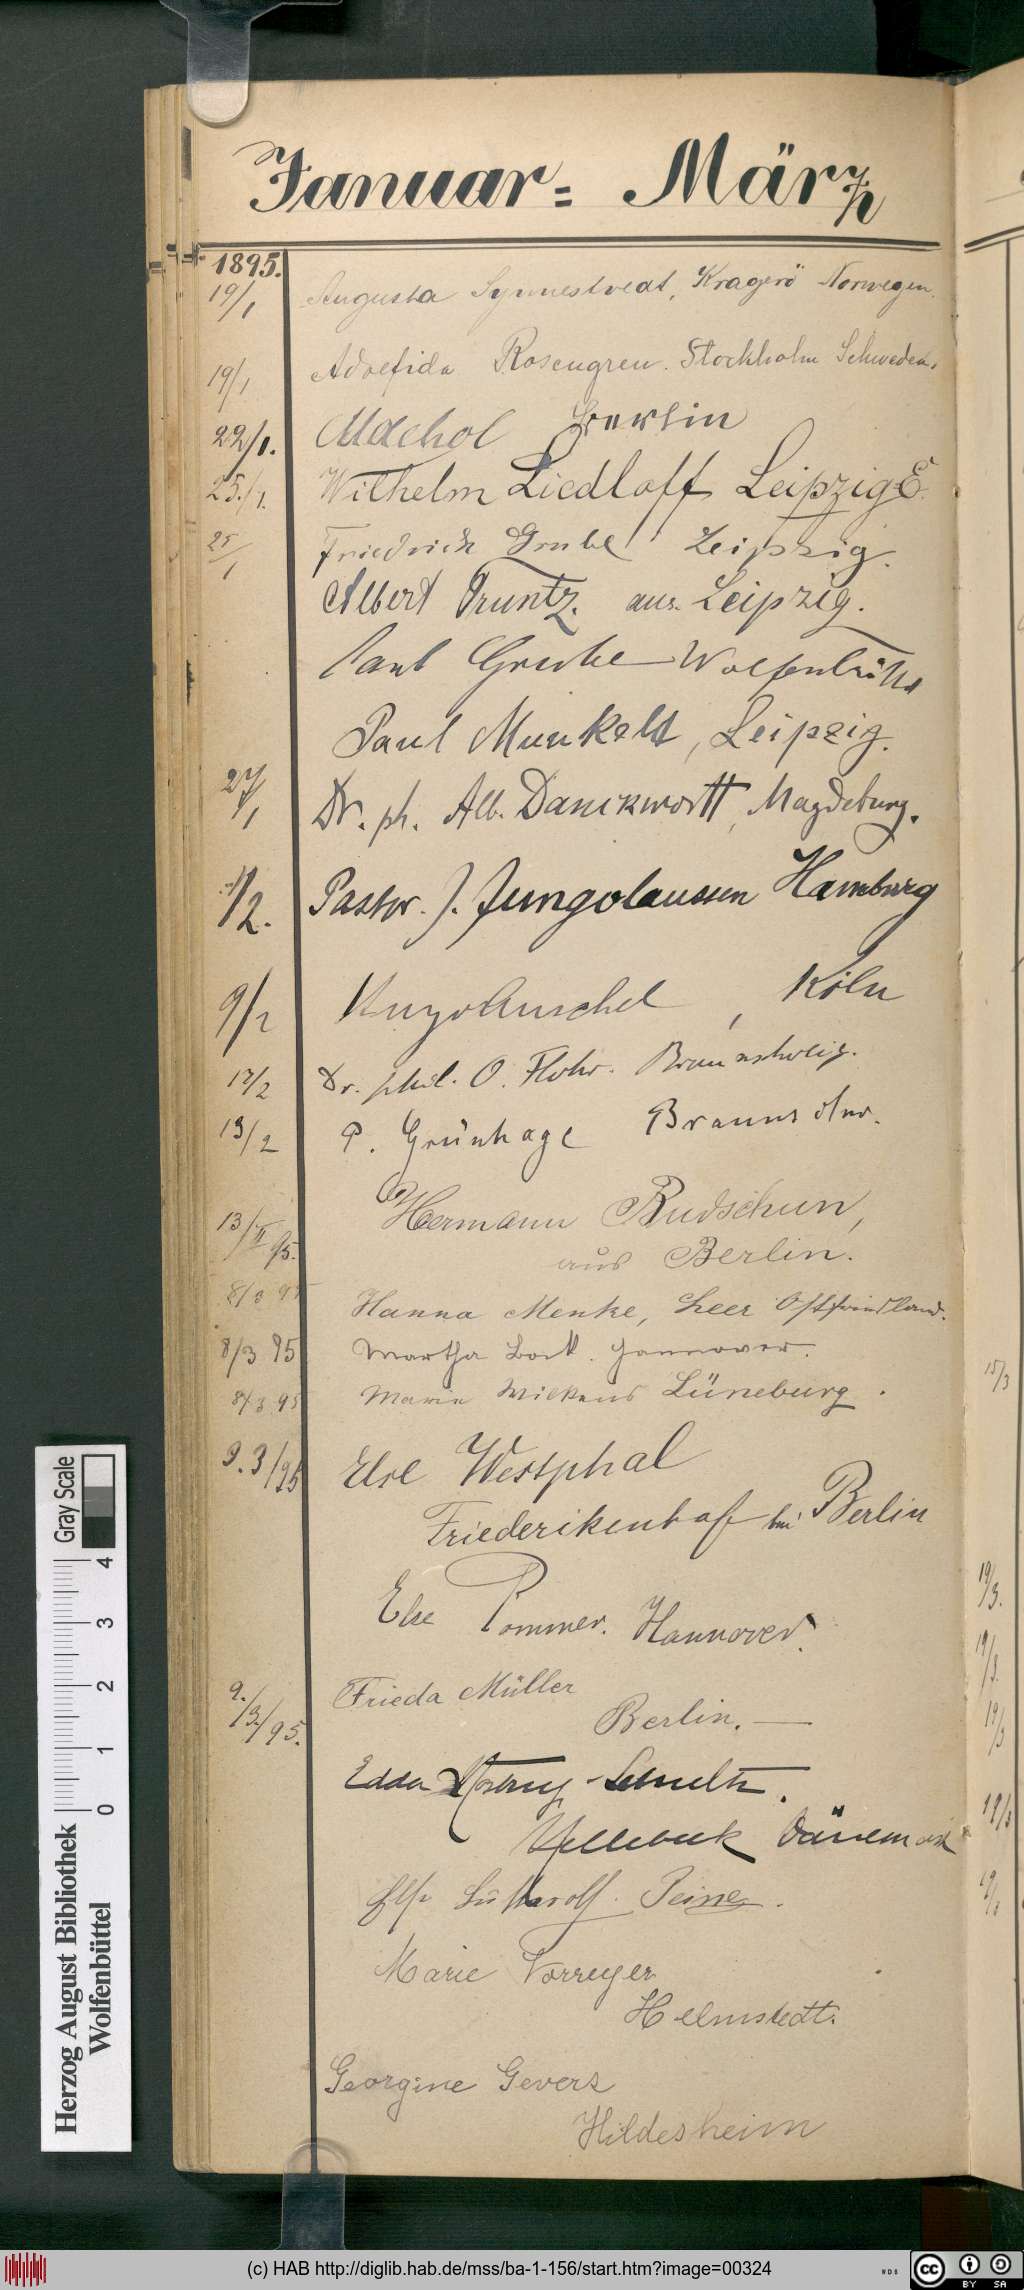 Januar= März
1895.
19/1 Augusta Synnestvedt, Kragerö Norwegen.
19/1 Adolfida Rosengren. Stockholm Schweden.
22/1. Machol Berlin
25./1. Wilhelm Liedloff, Leipzig-E.
25/1 Friedrich Grube Leipzig.
Albert Truntz. aus Leipzig.
Paul Grube Wolfenbüttel
Paul Munkelt, Leipzig.
27/1 Dr. ph. Alb. Danckwortt, Magdeburg.
1/2. Pastor. J. Jungclaussen Hamburg
9/2 Hugo Auschel, Köln
12/2 Dr. phil. O. Flohr. Braunschweig.
13/2 P. Grünhage Braunschw.
13/II 95. Hermann Rudschun,
aus Berlin.
8/3 95 Hanna Menke, Leer Ostfriesland.
8/3 95 Martha Bock. Hannover.
8/3 95 Marie Wickens Lüneburg.
9.3/95 Else Westphal
Friederikenhof bei Berlin
Else Pommer. Hannover.
9./3./95. Frieda Müller
Berlin. —
Edda
Hellebæk Dänemark
Else Peine.
Marie Vorreyer
Helmstedt.
Georgine Gevers
Hildesheim
15/3
19/3.
19/3.
19/3
19/3
Gray Scale
0 1 2 3 4
Herzog August Bibliothek
Wolfenbüttel
(c) HAB http://diglib.hab.de/mss/ba-1-156/start.htm?image=00324
WDB
cc BY SA